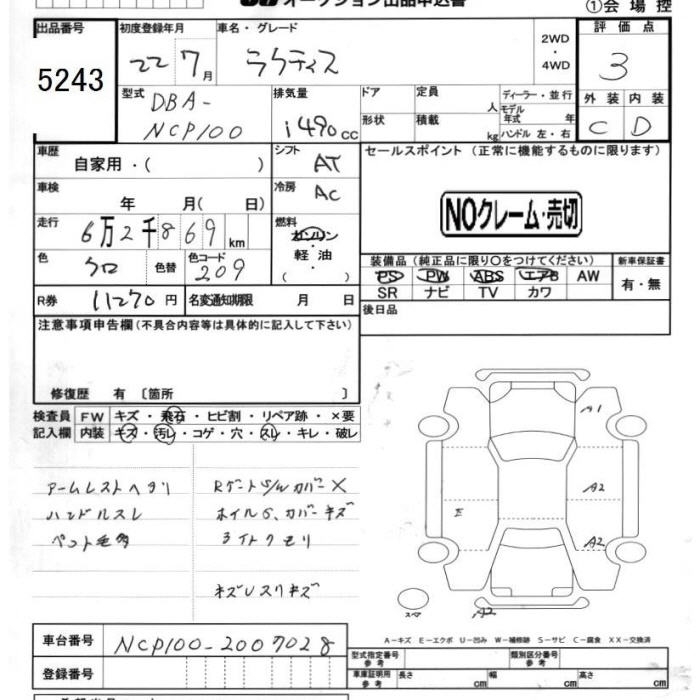 オークション出品申込書
①会場控
出品番号
5243
初度登録年月
22 7月
車名・グレード
ラクティス
2WD
・
4WD
評価点
3
外装 内装
C D
型式
DBA-
NCP100
排気量
1490cc
ドア
形状
定員 人
積載 kg
ディーラー・並行
モデル
年式 年
ハンドル 左・右
車歴
自家用・( )
シフト
AT
セールスポイント(正常に機能するものに限ります)
車検
年 月( 日)
冷房
AC
NOクレーム・売切
走行
6万2千869km
燃料
ガソリン
・
軽油
( )
色
クロ
色替
色コード
209
装備品(純正品に限り〇をつけてください)
PS PW ABS エアB AW
SR ナビ TV カワ
新車保証書
有・無
R券 11270円
名変通知期限 月 日
後日品
注意事項申告欄(不具合内容等は具体的に記入して下さい)
修復歴 有〔箇所 〕
検査員
記入欄
FW キズ・飛石・ヒビ割・リペア跡・×要
内装 キズ・汚レ・コゲ・穴・スレ・キレ・破レ
アームレストヘタリ
ハンドルスレ
ペット毛多
RゲートS/Wカバー×
ホイル6、カバーキズ
3イトクモリ
キズUスリキズ
A1
A2
E
A2
スペア
A2
A-キズ E-エクボ U-凹み W-補修跡 S-サビ C-腐食 XX-交換済
車台番号
NCP100-2007028
登録番号
型式指定番号
参考
類別区分番号
参考
車庫証明用
参考
長さ cm
幅 cm
高さ cm